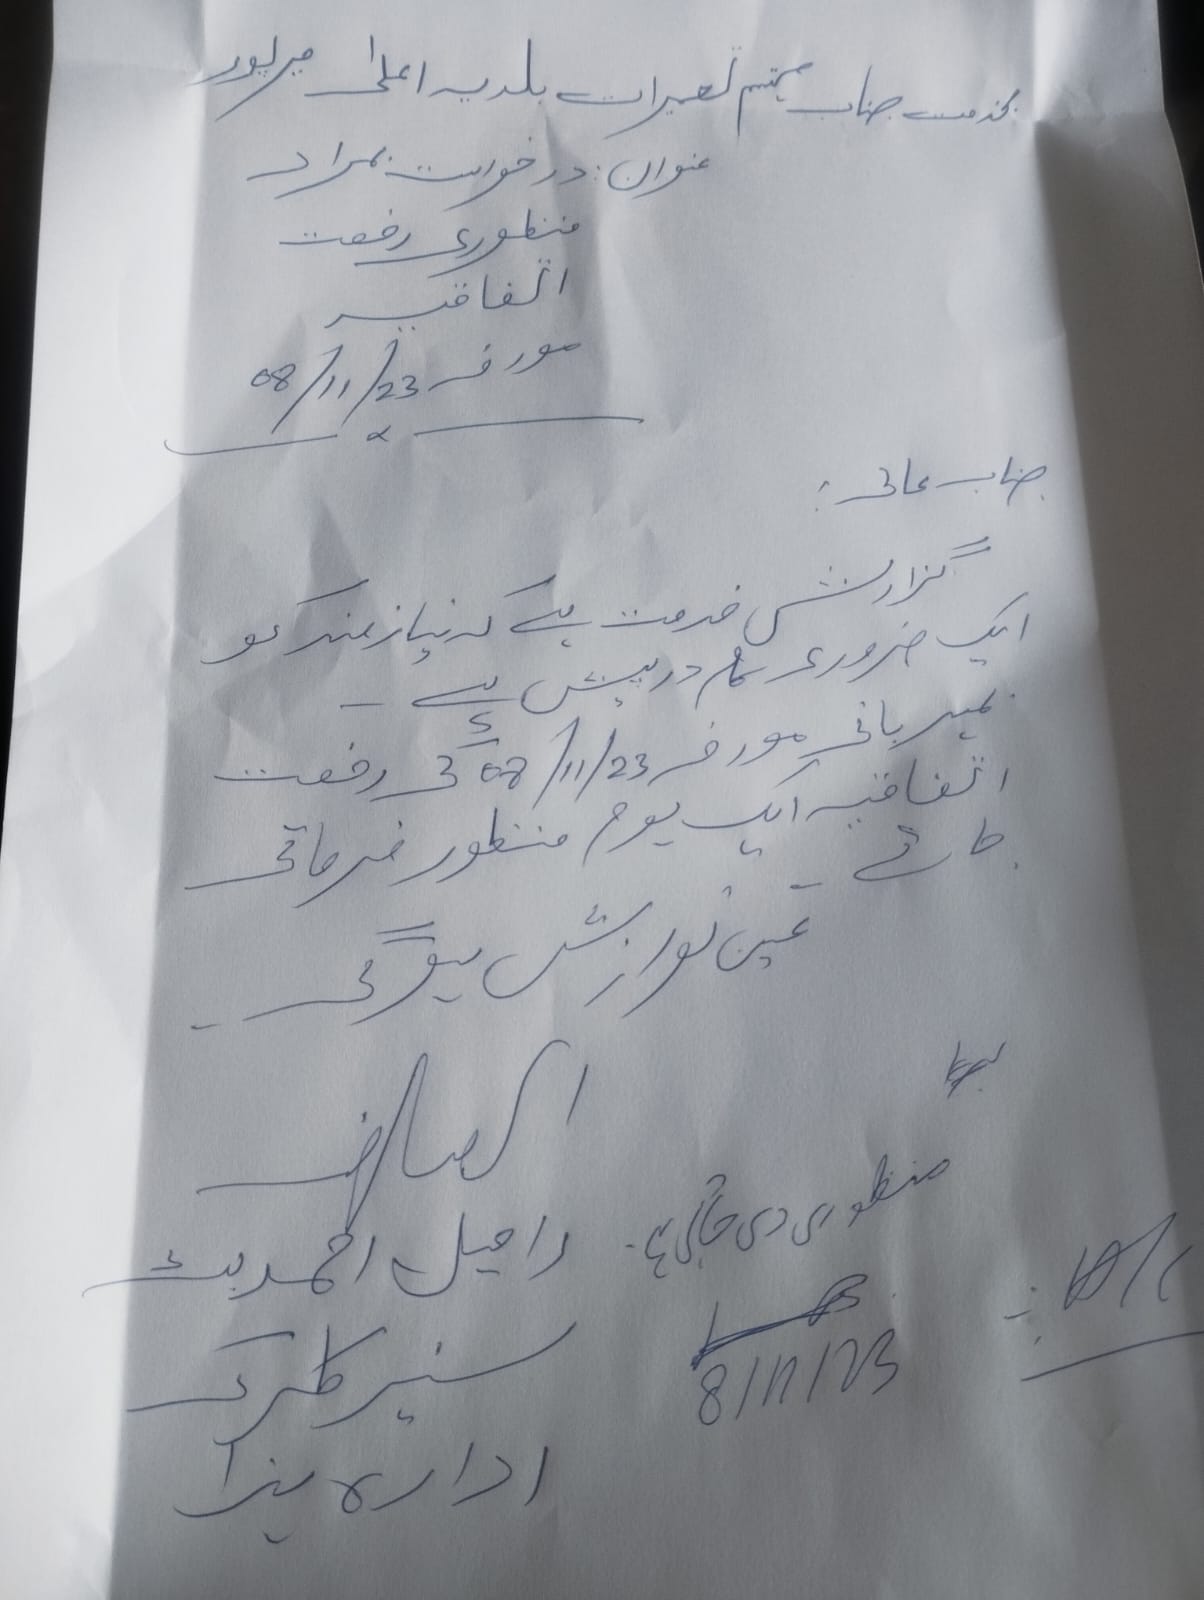 بخدمت جناب مہتمم تعمیرات بلدیہ اعلیٰ میرپور
عنوان: درخواست بمراد
منظوری رخصت
اتفاقیہ
مورخہ 08/11/23
جناب عالی:
گزارش خدمت ہے کہ نیازمند کو
ایک ضروری کام درپیش ہے ۔
بمہربانی مورخہ 08/11/23 کی رخصت
اتفاقیہ ایک یوم منظور فرمائی
جائے ۔
عین نوازش ہوگی ۔
العارض
راحیل احمد بٹ
سنیئر کلرک
ادارہ ہذا
منظوری دی جاتی ہے ۔
8/11/23